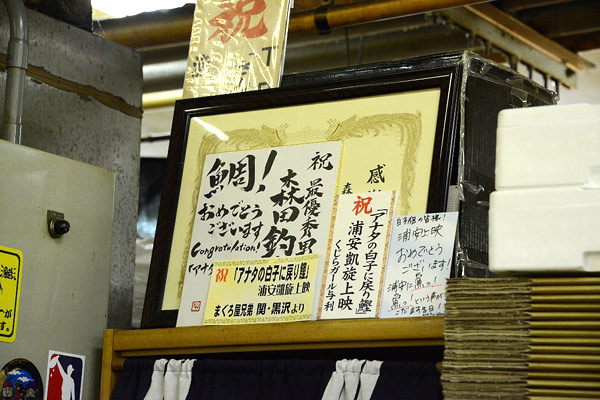 祝
感
祝
最優秀男
森田釣
鯛!
おめでとう
ございます
Congratulation!
「アナタ
祝
「アナタの白子に戻り鰹」
浦安凱旋上映
まぐろ屋兄弟 関・黒沢より
祝
「アナタの白子に戻り鰹」
浦安凱旋上映
くじらガール与利
白子組の皆様!
浦安上映
おめでとう
ございます!
浦中に